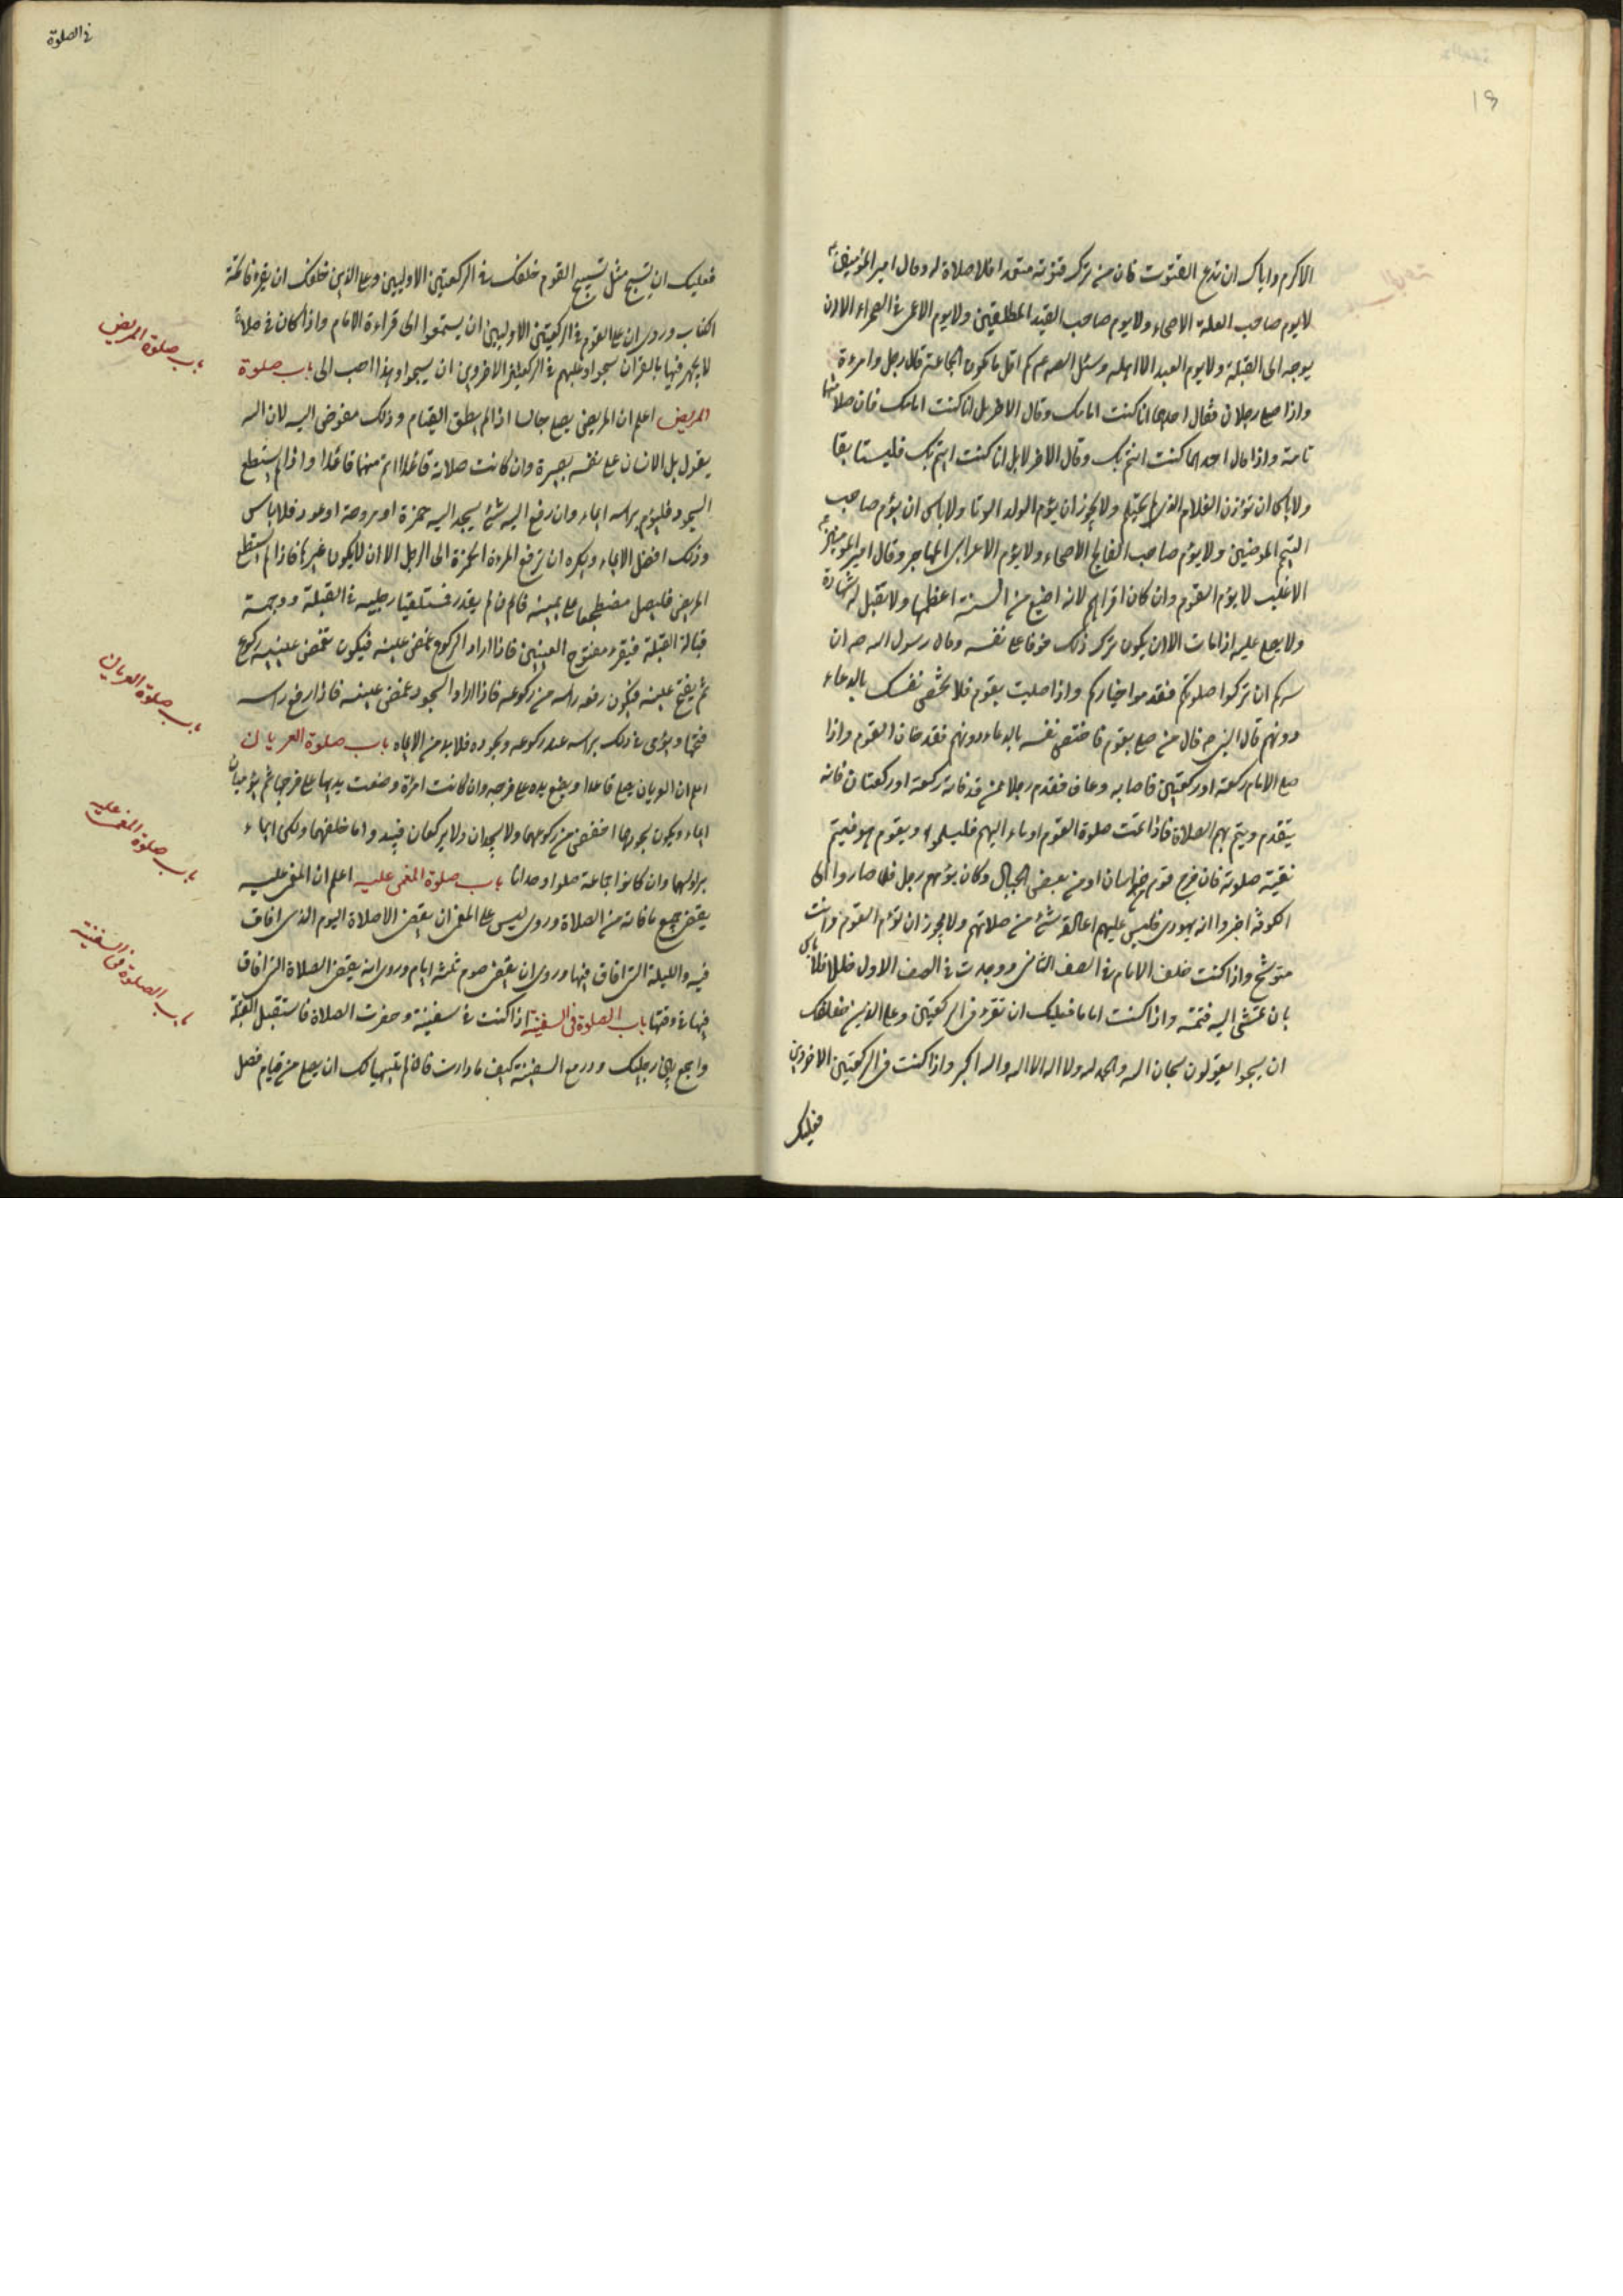 ١٩
الاكرم واياك ان تدع القنوت فان من ترك قنوته متعمدا فلا صلاة له وقال امير المؤمنين ع
لا يوم صاحب العلة الاصحاء ولا يوم صاحب القيد المطلقين ولا يوم الاعمى في الصحراء الا ان
يوجه الى القبلة ولا يوم العبد الا اهله وسئل الصادق ع كم اقل ما يكون الجماعة قال رجل وامرءة
واذا صلى رجلان فقال احدهما انا كنت امامك وقال الاخر بل انا كنت امامك فان صلاتهما
تامة واذا قال احدهما كنت ائتم بك وقال الاخر لا بل انا كنت ائتم بك فليستانفا
ولا باس ان يؤذن الغلام الذى لم يحتلم ولا يجوز ان يؤم الولد الزنا ولا باس ان يؤم صاحب
التيمم المتوضين ولا يؤم صاحب الفالج الاصحاء ولا يؤم الاعرابى المهاجر وقال امير المؤمنين ع
الاغلب لا يؤم القوم وان كان اقراهم لانه اضيع من السنة اعظمها ولا تقبل له شهادة
ولا يصلى عليه اذا مات الا ان يكون ترك ذلك خوفا على نفسه وقال رسول الله ص ان
سركم ان تزكوا صلوتكم فقدموا خياركم واذا صليت بقوم فلا تخص نفسك بالدعاء
دونهم قال النبى ص قال من صلى بقوم فاختص نفسه بالدعاء دونهم فقد خان القوم واذا
صلى الامام ركعة او ركعتين فاصابه رعاف فقدم رجلا ممن قد فاته ركعة او ركعتان فانه
يتقدم ويتم بهم الصلاة فاذا تمت صلوة القوم اوماء اليهم فليسلموا ويقوم هو فيتم
بقية صلوته فان خرج قوم من خراسان او من بعض الجبال وكان يؤمهم رجل فلما صاروا الى
الكوفة اخبروا انه يهودى فليس عليهم اعادة شئ من صلاتهم ولا يجوز ان تؤم القوم وانت
متوشح واذا كنت خلف الامام في الصف الثانى ووجدت في الصف الاول خللا فلا باس
بان تمشى اليه فتتمه واذا كنت اماما فعليك ان تقرء في الركعتين وعلى الذين خلفك
ان يسبحوا يقولون سبحان الله والحمد لله ولا اله الا الله والله اكبر واذا كنت في الركعتين الاخروين
فعليك
في الصلوة
فعليك ان تسبح مثل تسبيح القوم خلفك في الركعتين الاوليين وعلى الذين خلفك ان يقرءوا فاتحة
الكتاب وروى ان على القوم في الركعتين الاوليين ان يستمعوا الى قراءة الامام واذا كان في صلاة
لا يجهر فيها بالقران سبحوا وعليهم في الركعتين الاخروين ان يسبحوا وهذا احب الى باب صلوة
المريض اعلم ان المريض يصلى جالسا اذا لم يطق القيام وذلك مفوض اليه لان الله
يقول بل الانسان على نفسه بصيرة وان كانت صلاته قاعدا اتم منها قاعدا واذا لم يستطع
السجود فليؤم براسه ايماء وان رفع اليه شئ يسجد اليه خمرة او مروحة او عود فلا باس
وذلك افضل الايماء ويكره ان ترفع المرءة الخمرة الى الرجل الا ان لا يكون غيرها فاذا لم يستطع
المريض فليصل مضطجعا على يمينه فان لم يقدر فمستلقيا رجليه في القبلة ووجهه
قبالة القبلة فيقرء مفتوح العينين فاذا اراد الركوع غمض عينيه فيكون تغمض عينيه ركوع
ثم يفتح عينيه فيكون رفعه راسه من ركوعه فاذا اراد السجود غمض عينيه فاذا رفع راسه
فتحها ويؤمى في ذلك براسه عند ركوعه وسجوده فلا بد من الايماء باب صلوة العريان
اعلم ان العريان يصلى قاعدا ويضع يده على فرجه وان كانت امرئة وضعت يديها على فرجها ثم يؤميان
ايماء ويكون سجودهما اخفض من ركوعهما ولا يسجدان ولا يركعان فيبدو ما خلفهما ولكن ايماء
برؤسهما وان كانوا جماعة صلوا وحدانا باب صلوة المغمى عليه اعلم ان المغمى عليه
يقضى جميع ما فاته من الصلاة وروى ليس على المغمى ان يقضى الا صلاة اليوم الذى افاق
فيه والليلة التى افاق فيها وروى ان يقضى صوم ثلثة ايام وروى انه يقضى الصلاة التى افاق
فيها في وقتها باب الصلوة في السفينة اذا كنت في سفينة وحضرت الصلاة فاستقبل القبلة
واجمع بين رجليك ودر مع السفينة كيف ما دارت فان لم يتهيا لك ان تصلى من قيام فصل
باب صلوة المريض
باب صلوة العريان
باب صلوة المغمى عليه
باب الصلوة في السفينة